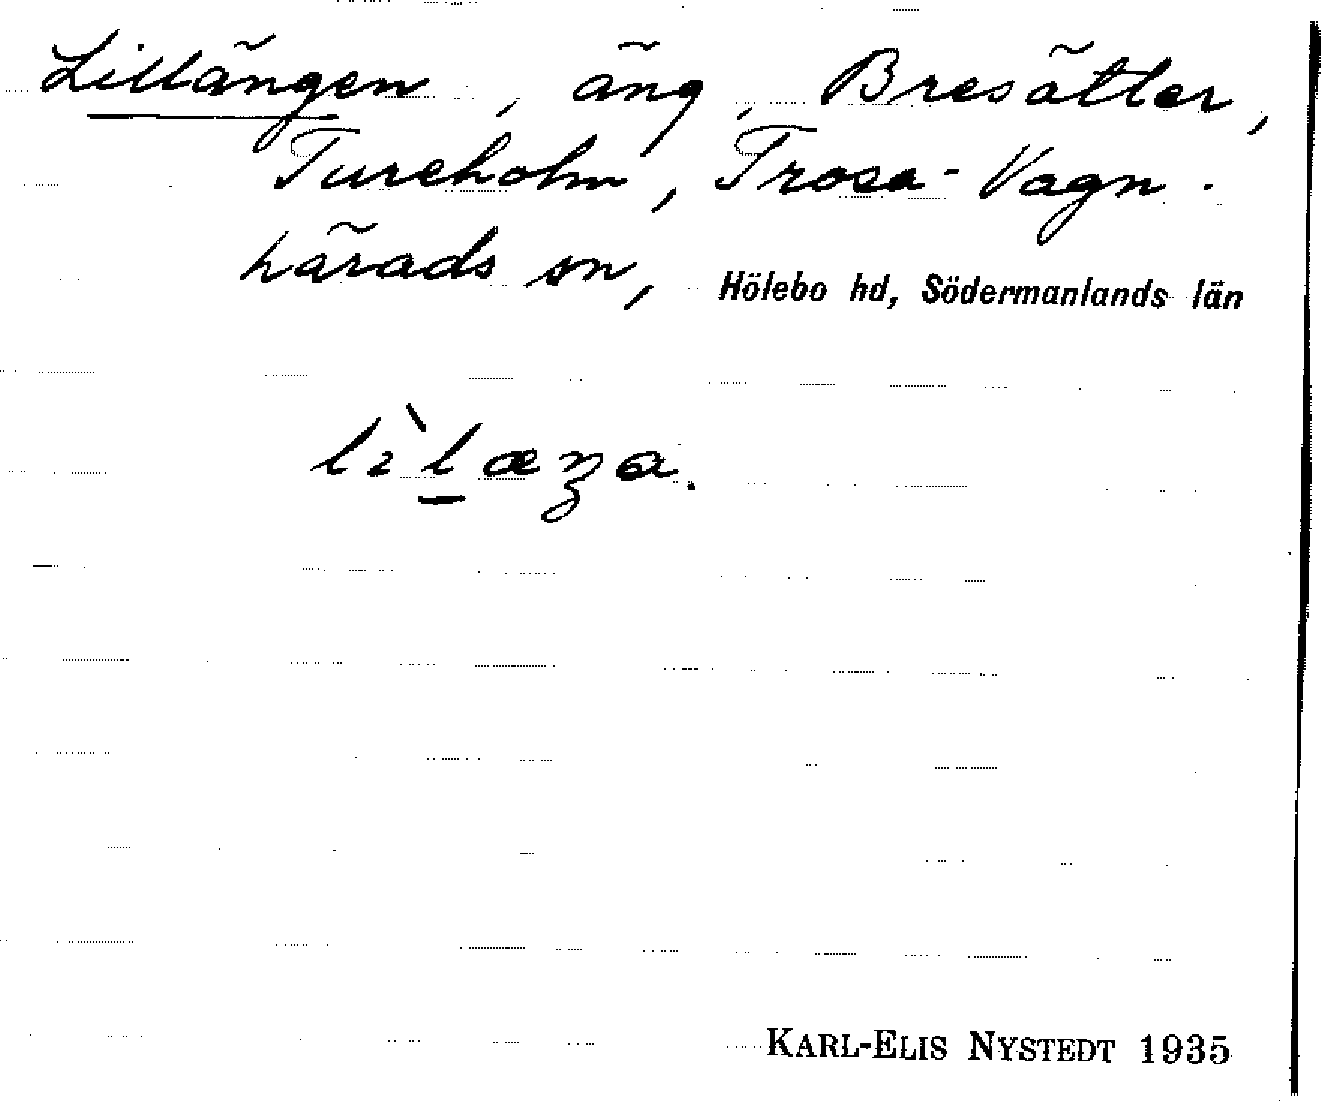 Lillängen, äng, Bresätter,
Tureholm, Trosa-Vagn-
härads sn, Hölebo hd, Södermanlands län
lìlæŋa.
KARL-ELIS NYSTEDT 1935